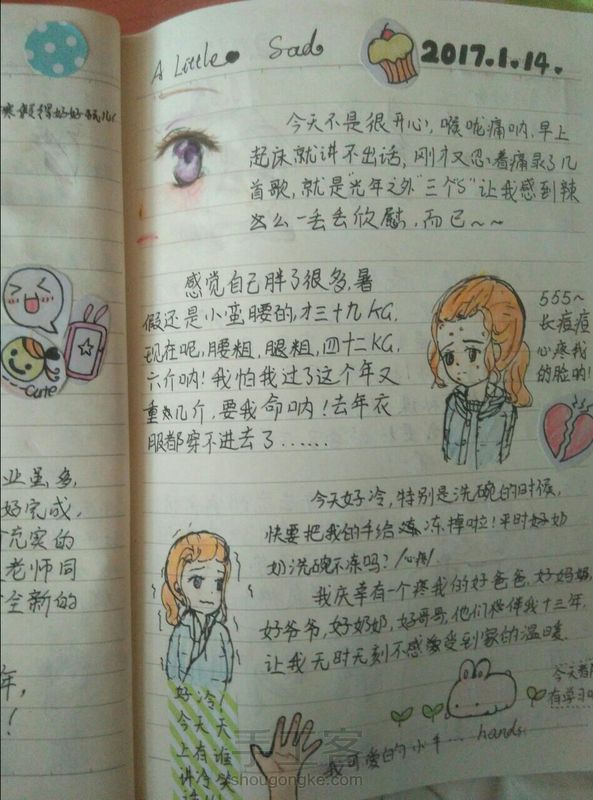 寒假得好好玩儿
cute
业虽多,
好完成,
充实的
老师同
全新的
年,
!
A Little Sad
2017.1.14.
今天不是很开心, 喉咙痛呐, 早上
起床就讲不出话, 刚才又忍着痛录了几
首歌, 就是"光年之外"三个"S"让我感到辣
么么一丢丢欣慰, 而已~~
感觉自己胖了很多, 暑
假还是小蛮腰的, 才三十九KG,
现在呢, 腰粗, 腿粗, 四十二KG,
六斤呐! 我怕我过了这个年又
重几斤, 要我命呐! 去年衣
服都穿不进去了......
555~
长痘痘
心疼我
的脸呐!
今天好冷, 特别是洗碗的时候,
快要把我的手给冻掉啦! 平时奶
奶洗碗不冻吗? /心疼/
我庆幸有一个疼我的好爸爸, 好妈妈,
好爷爷, 好奶奶, 好哥哥, 他们陪伴我十三年,
让我无时无刻不感受到家的温暖.
好冷
今天天
上有谁
讲冷笑
今天都
有学习
我可爱的小手... hands.
手工客
shougongke.com